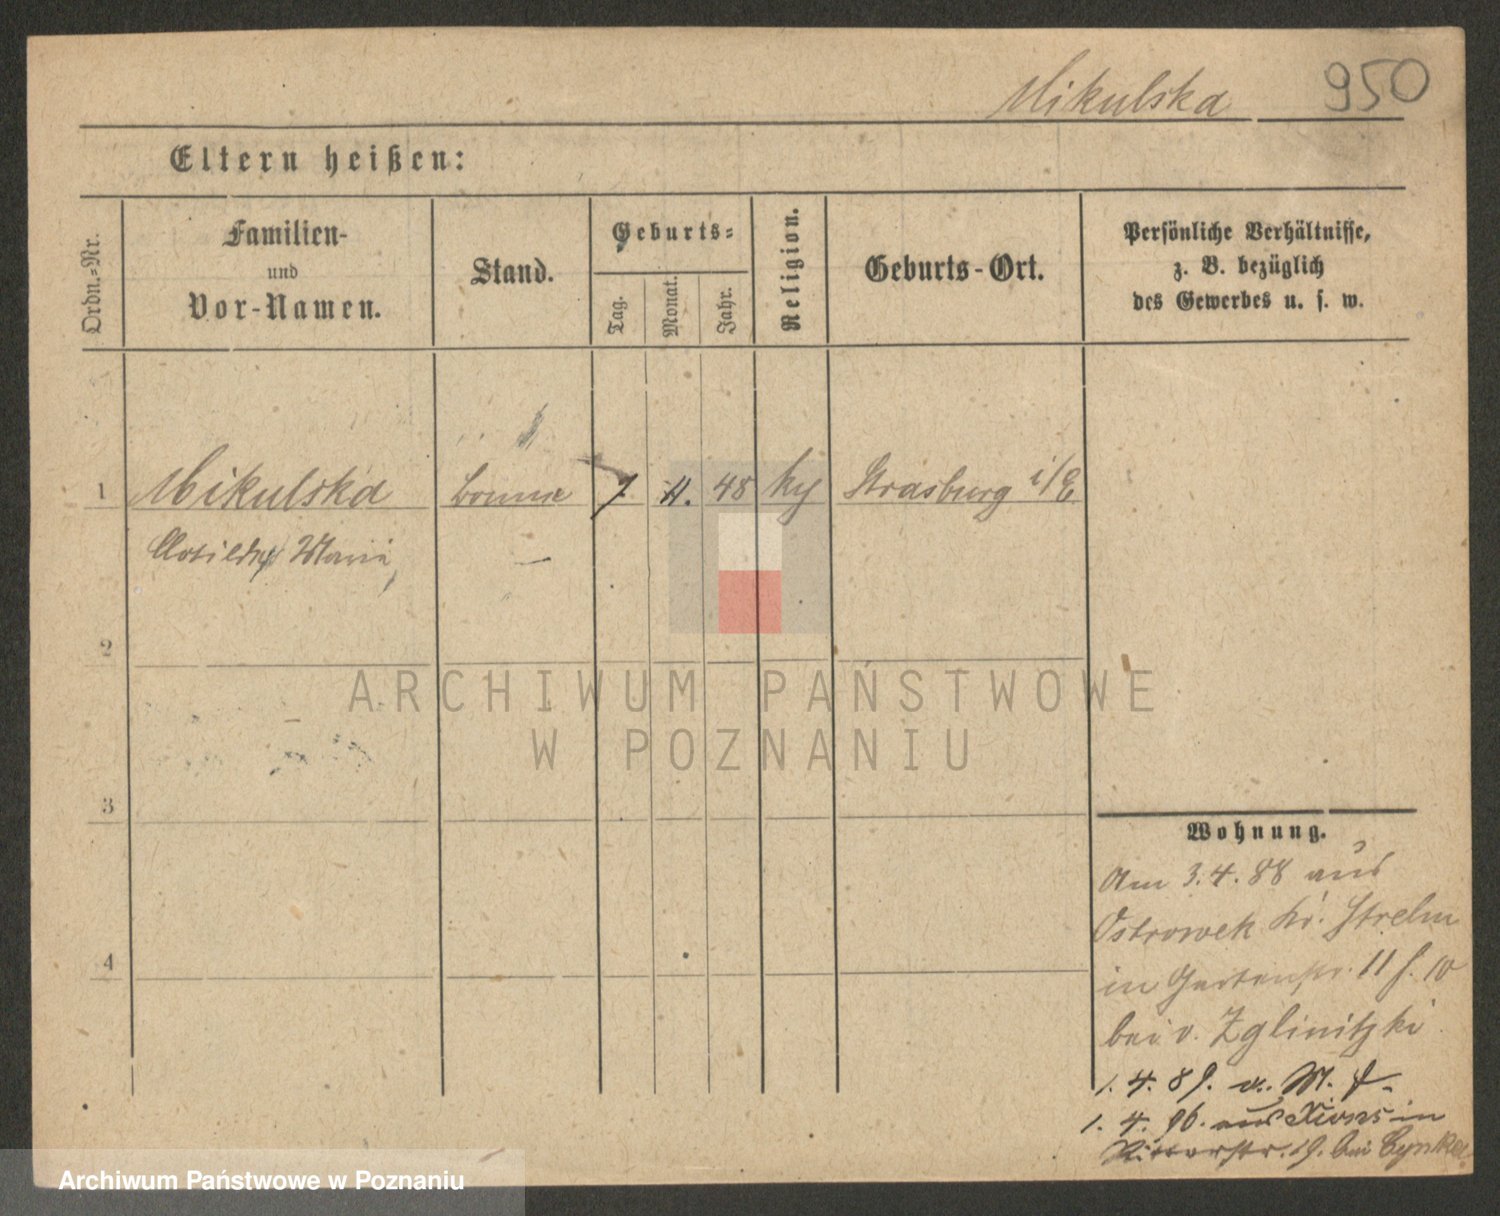 Mikulska 950
Eltern heißen:
Ordn.-Nr.
Familien-
und
Vor-Namen.
Stand.
Geburts-
Tag.
Monat.
Jahr.
Religion.
Geburts-Ort.
Persönliche Verhältnisse,
z. B. bezüglich
des Gewerbes u. s. w.
1 Mikulska Bonne 7 11. 48 kg Strasburg i/E.
Clotilde Maria
2
3
4
ARCHIWUM PAŃSTWOWE
W POZNANIU
Wohnung.
Am 3.4.88 aus
Ostrowek Kr. Strelno
in Gartenstr. 11 f. 10
bei v. Zglinitzki
1. 4. 89. v. M.
1. 4. 96. aus Xions in
Ritterstr. 19. bei
Archiwum Państwowe w Poznaniu